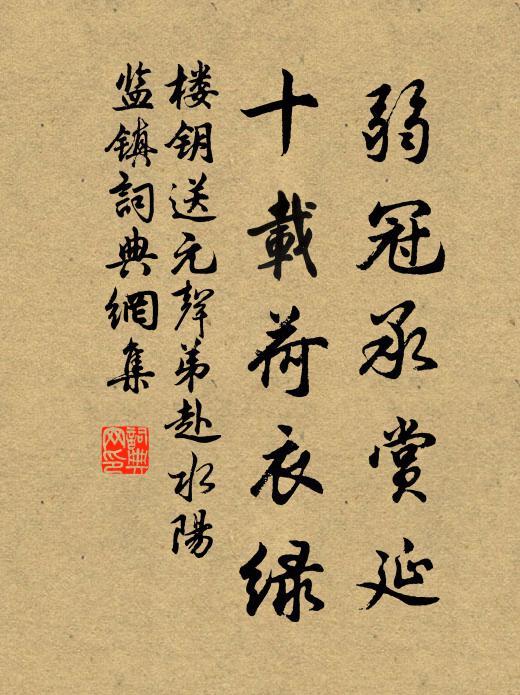 弱冠承賞延
十載荷衣绿
楼钥送元聲弟赴水陽
监镇詞典網集
詞典網印